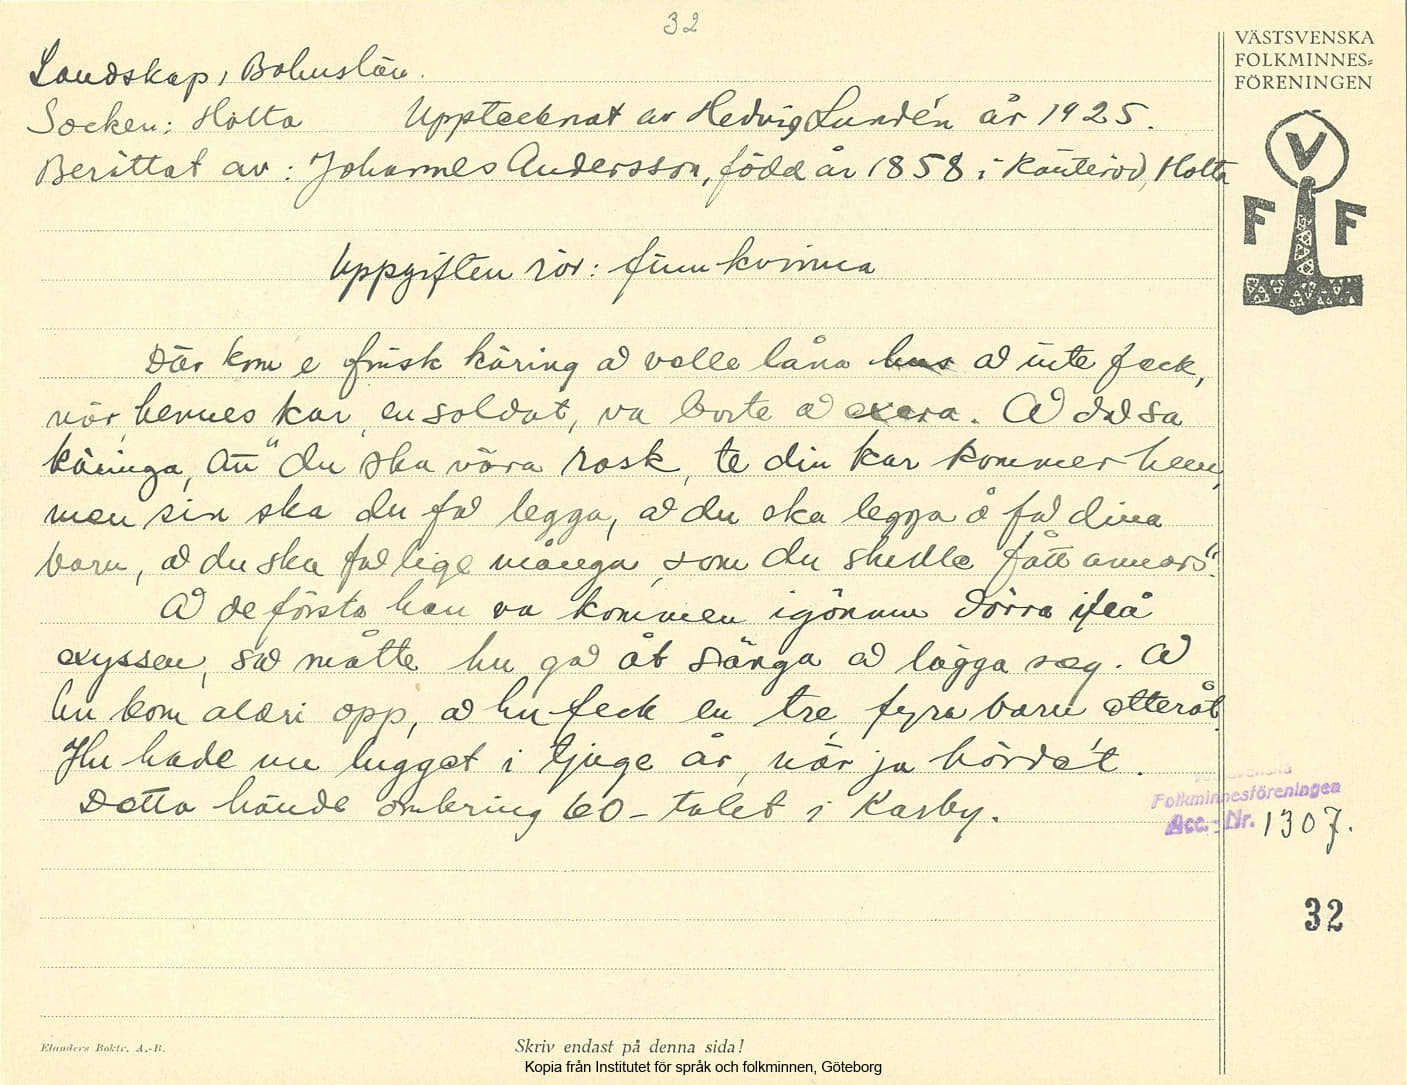 32
VÄSTSVENSKA
FOLKMINNES-
FÖRENINGEN
Landskap: Bohuslän.
Socken: Holta Upptecknat av Hedvig Lundén år 1925.
Berättat av: Johannes Andersson, född år 1858 i Känteröd, Holta
V
F F
Uppgiften rör: finnkvinna
Där kom e finsk käring å volle låna hus å inte feck,
när hennes kar, en soldat, va borte å exera. Å då sa
käringa, att "du ska våra rask, te din kar kommer hem,
men sin ska du få legga, å du ska legga å få dina
barn, å du ska få lige många, som du skulle fått annars".
Å de första han va kommen igönum dörra ifrå
exyssen, så måtte hu gå åt sänga å lägga sæg. Å
hu kom aldri opp, å hu feck en tre, fyra barn etteråt.
Hu hade nu legget i tjuge år, när ja hörde't.
Detta hände omkring 60-talet i Karby.
Västsvenska
Folkminnesföreningen
Acc.-Nr. 1307.
32
Elanders Boktr. A.-B.
Skriv endast på denna sida!
Kopia från Institutet för språk och folkminnen, Göteborg